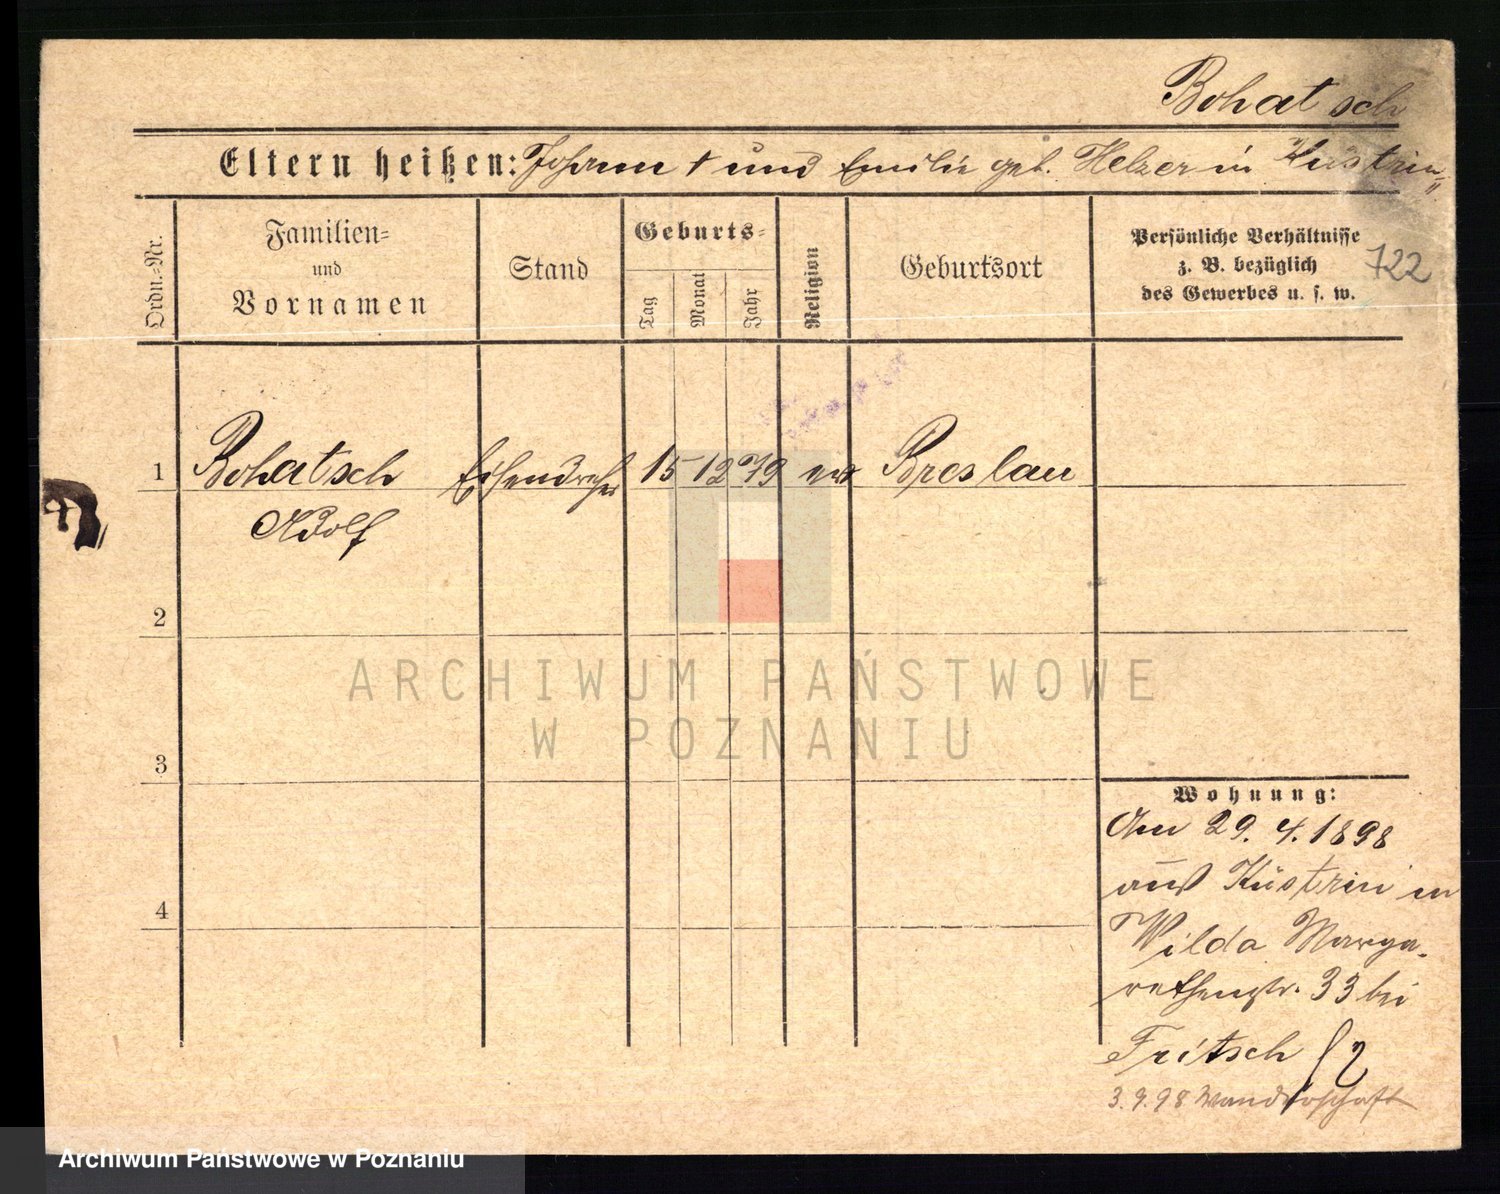 Bohatsch
Eltern heißen: Johann † und Emilie geb. Helzer in Küstrin
Ordn.-Nr.
Familien-
und
Vornamen
Stand
Geburts-
Tag
Monat
Jahr
Religion
Geburtsort
Persönliche Verhältnisse
z. B. bezüglich
des Gewerbes u. s. w.
722
1 Bohatsch Eisendreher 15 12 79 ev Breslau
Adolf
2
3
4
Wohnung:
Am 29. 4. 1898
aus Küstrin in
Wilda Marga-
rethenstr. 33 bei
Fritsch
3.9.98 Wanderschaft
ARCHIWUM PAŃSTWOWE
W POZNANIU
Archiwum Państwowe w Poznaniu